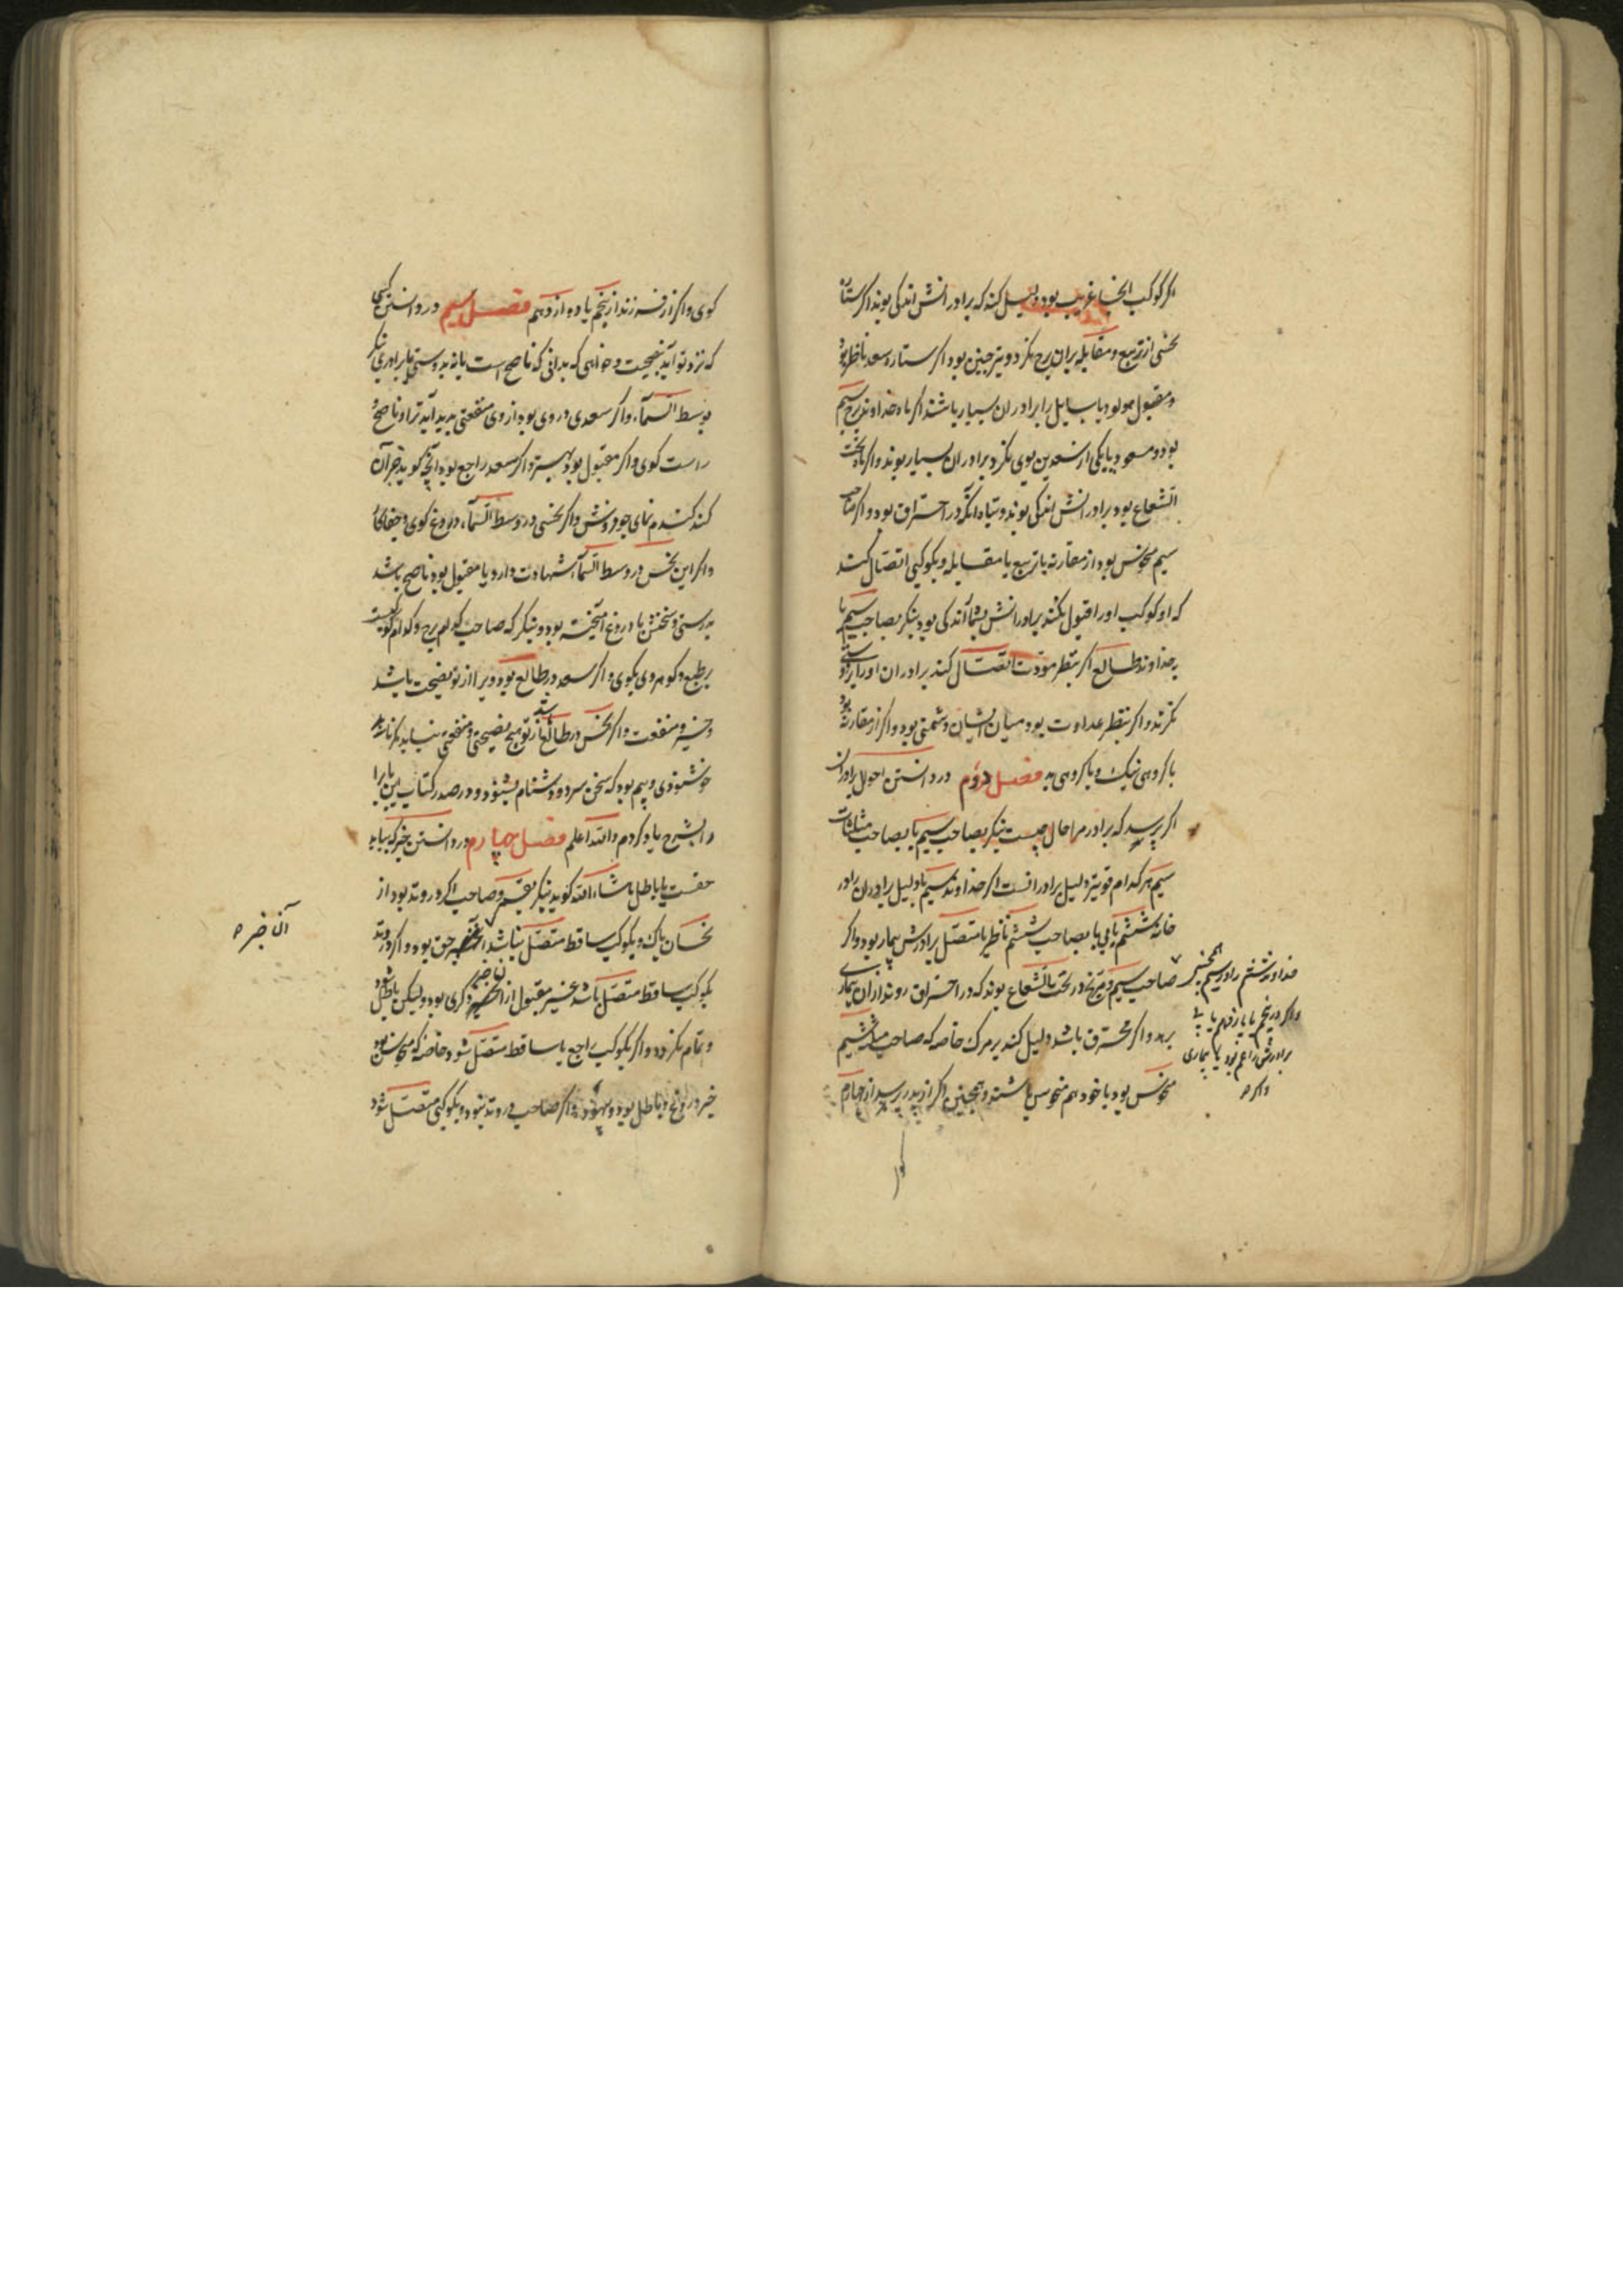 اگر کوکب آنجا غریب بود دلیل کند که برادرانش اندکی بوند اگر ستاره
نحس از تربیع و مقابله بران برج نگرد و نیز چنین بود اگر ستاره سعد ناظر بود
و مقبول مولود یا سایل را برادران بسیار باشند اگر ماه خداوند برج سیم
بود و مسعود یا یکی از سعدین بوی نگرد برادران بسیار بوند و اگر ماه تحت
الشعاع بود برادرانش اندکی بوند و تباه آنکه در احتراق بود و اگر صاحب
سیم منحوس بود از مقارنه یا تربیع یا مقابله و بکوکبی اتصال کند
که او کوکب او را قبول نکند برادرانش اندکی بود بنگر بصاحب سیم یا
بخداوند طالع اگر بنظر مودت اتصال کند برادران او را
نگرند و اگر بنظر عداوت بود میان ایشان دشمنی بود و اگر از مقارنه بود
با کروهی نیک و با کروهی بد فصل دوم در دانستن احوال برادران
اگر پرسید که برادر مرا حال چیست بنگر بصاحب سیم یا بصاحب مثلثات
سیم هر کدام قویتر دلیل برادر انست اگر خداوند سیم یا دلیل برادران را در
خانه ششم یابی یا بصاحب ششم ناظر یا متصل برادرش بیمار بود و اگر
صاحب سیم و مریخ در تحت الشعاع بوند که در احتراق روند از ان بیماری
برهد و اگر محترق باشد دلیل کند بر مرک خاصه که صاحب ششم
منحوس بود یا خود هم منحوس باشند و همچنین اگر از پدر پرسید از چهارم
همچنین
خداوند ششم را در سیم
و اگر در پنجم یا یازدهم یابی
برادرش را غم بود یا بیماری
و اگر
کوی
کوی و اگر از فرزند از پنجم یا دوازدهم فصل سیم در دانستن کسی
که نزد تو آید بنصیحت و خواهی که بدانی که ناصح است یا نه بدوستی یا برادری بنگر
بوسط السماء و اگر سعدی در وی بود از وی منفعتی پدید آید ترا و ناصح و
راست کوی و اگر مقبول بود بهتر و اگر سعد راجع بود آنچه کوید جز آن
کند کندم نمای جو فروش و اگر نحسی در وسط السماء دروغ کوی و جفاکار
و اگر این نحس در وسط السماء شهادت دارد یا مقبول بود ناصح باشد
بدرستی و سخنش با دروغ آمیخته بود و بنکر که صاحب کدام برج و کدام کوکبست
بر طبع و کوهر وی بکوی و اگر سعد در طالع بود ویرا از تو نصیحت باشد
و خیر و منفعت و اگر نحس در طالع باشد از تو هیچ نصیحتی و منفعتی نیابد مکر
خوشنودی و بیم بود که سخن سرد و دشنام بشنود و در صدر کتاب این باب را
بشرح یاد کردم والله اعلم فصل چهارم در دانستن خبر که بیاید
حقست یا باطل ماشاء الله کوید بنکر بقمر و صاحب اکر در وتد بود از
نحسان پاک و بکوکب ساقط متصل نباشد حق بود و اکر در وتد
بکوکب ساقط متصل باشد غیر مقبول از ان خبر ذکری بود ولیکن باطل شود
و تمام نکردد و اکر بکوکب راجع یا ساقط متصل شود خاصه که منحوس بود
خبر دروغ و باطل بود و بیهوده و اکر صاحب در وتد نبود و بکوکبی متصل شود
آن خبر